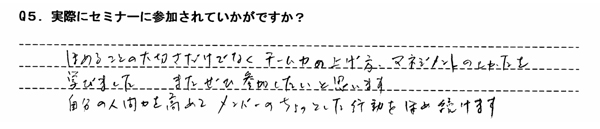 Q5. 実際にセミナーに参加されていかがですか?
ほめることの大切さだけでなくチーム力の上げ方、マネジメントのしかたを
学びました またぜひ参加したいと思います
自分の人間力を高めて メンバーのちょっとした行動をほめ続けます